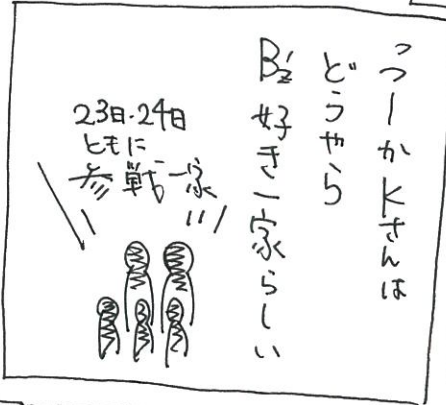 っつーかKさんは
どうやら
B'z好き一家らしい
23日・24日
ともに
参戦一家